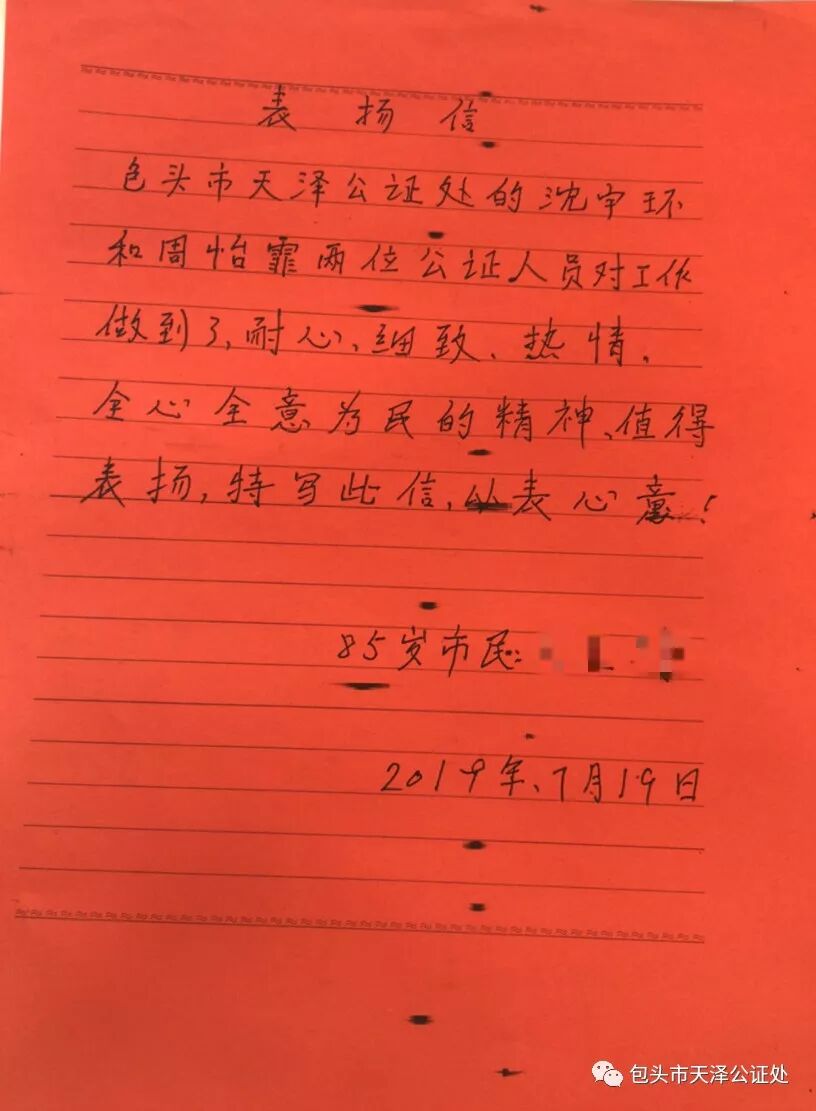 表扬信
包头市天泽公证处的沈宇环
和周怡霏两位公证人员对工作
做到了,耐心、细致、热情,
全心全意为民的精神、值得
表扬,特写此信,以表心意!
85岁市民:
2019年、7月19日
包头市天泽公证处